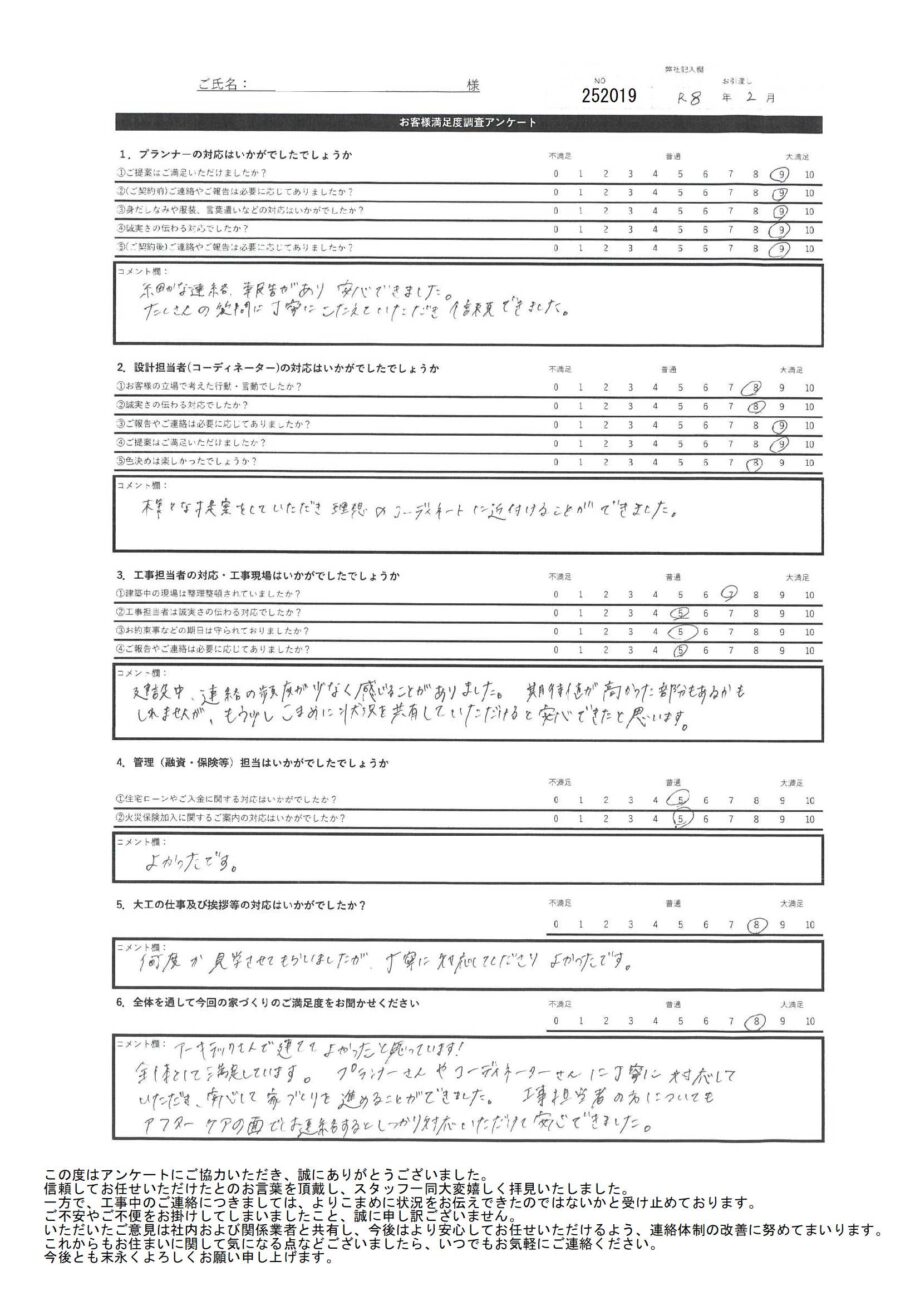 弊社記入欄
ご氏名： 様 NO お引渡し
252019 R8 年 2 月
お客様満足度調査アンケート
1．プランナーの対応はいかがでしたでしょうか 不満足 普通 大満足
①ご提案はご満足いただけましたか？ 0 1 2 3 4 5 6 7 8 9 10
②(ご契約前)ご連絡やご報告は必要に応じてありましたか？ 0 1 2 3 4 5 6 7 8 9 10
③身だしなみや服装、言葉遣いなどの対応はいかがでしたか？ 0 1 2 3 4 5 6 7 8 9 10
④誠実さの伝わる対応でしたか？ 0 1 2 3 4 5 6 7 8 9 10
⑤(ご契約後)ご連絡やご報告は必要に応じてありましたか？ 0 1 2 3 4 5 6 7 8 9 10
コメント欄：
細かな連絡、報告があり 安心できました。
たくさんの質問に丁寧にこたえていただき 信頼できました。
2．設計担当者(コーディネーター)の対応はいかがでしたでしょうか 不満足 普通 大満足
①お客様の立場で考えた行動・言動でしたか？ 0 1 2 3 4 5 6 7 8 9 10
②誠実さの伝わる対応でしたか？ 0 1 2 3 4 5 6 7 8 9 10
③ご報告やご連絡は必要に応じてありましたか？ 0 1 2 3 4 5 6 7 8 9 10
④ご提案はご満足いただけましたか？ 0 1 2 3 4 5 6 7 8 9 10
⑤色決めは楽しかったでしょうか？ 0 1 2 3 4 5 6 7 8 9 10
コメント欄：
様々な提案をしていただき 理想のコーディネートに近付けることができました。
3．工事担当者の対応・工事現場はいかがでしたでしょうか 不満足 普通 大満足
①建築中の現場は整理整頓されていましたか？ 0 1 2 3 4 5 6 7 8 9 10
②工事担当者は誠実さの伝わる対応でしたか？ 0 1 2 3 4 5 6 7 8 9 10
③お約束事などの期日は守られておりましたか？ 0 1 2 3 4 5 6 7 8 9 10
④ご報告やご連絡は必要に応じてありましたか？ 0 1 2 3 4 5 6 7 8 9 10
コメント欄：
建設中、連絡の頻度が少なく感じることがありました。 期待値が高かった部分もあるかも
しれませんが、もう少しこまめに状況を共有していただけると安心できたと思います。
4．管理（融資・保険等）担当はいかがでしたでしょうか
不満足 普通 大満足
①住宅ローンやご入金に関する対応はいかがでしたか？ 0 1 2 3 4 5 6 7 8 9 10
②火災保険加入に関するご案内の対応はいかがでしたか？ 0 1 2 3 4 5 6 7 8 9 10
コメント欄：
よかったです。
5．大工の仕事及び挨拶等の対応はいかがでしたか？ 不満足 普通 大満足
0 1 2 3 4 5 6 7 8 9 10
コメント欄：
何度か見学させてもらいましたが、丁寧に対応してくださり よかったです。
6．全体を通して今回の家づくりのご満足度をお聞かせください 不満足 普通 大満足
0 1 2 3 4 5 6 7 8 9 10
コメント欄： アーキテックさんで建ててよかったと思っています！
全体として満足しています。 プランナーさんやコーディネーターさんに丁寧に対応して
いただき、安心して家づくりを進めることができました。 工事担当者の方についても
アフターケアの面でも連絡するとしっかり対応いただけて安心できました。
この度はアンケートにご協力いただき、誠にありがとうございました。
信頼してお任せいただけたとのお言葉を頂戴し、スタッフ一同大変嬉しく拝見いたしました。
一方で、工事中のご連絡につきましては、よりこまめに状況をお伝えできたのではないかと受け止めております。
ご不安やご不便をお掛けしてしまいましたこと、誠に申し訳ございません。
いただいたご意見は社内および関係業者と共有し、今後はより安心してお任せいただけるよう、連絡体制の改善に努めてまいります。
これからもお住まいに関して気になる点などございましたら、いつでもお気軽にご連絡ください。
今後とも末永くよろしくお願い申し上げます。